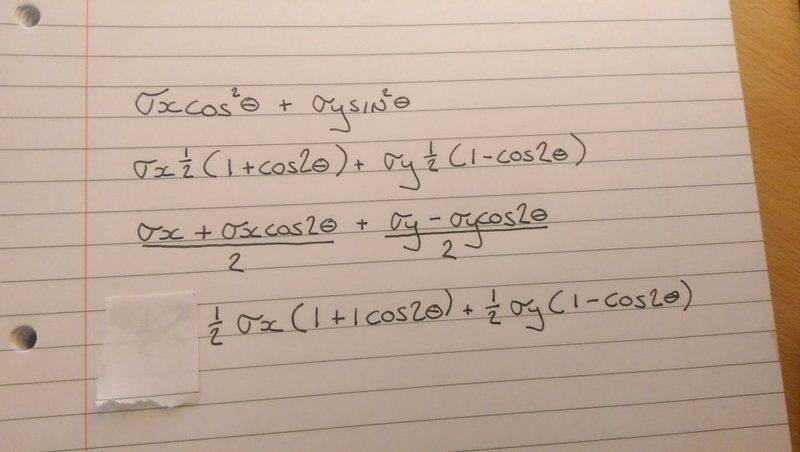 σx cos²θ + σy sin²θ
σx ½ (1+cos2θ) + σy ½ (1-cos2θ)
σx + σx cos2θ / 2 + σy - σy cos2θ / 2
½ σx (1+1cos2θ) + ½ σy (1-cos2θ)